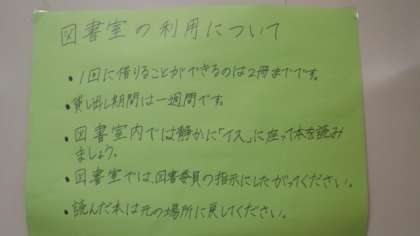 図書室の利用について
・1回に借りることができるのは2冊までです。
・貸し出し期間は一週間です。
・図書室内では静かに「イス」に座って本を読み
ましょう。
・図書室では、図書委員の指示にしたがってください。
・読んだ本は元の場所に戻してください。